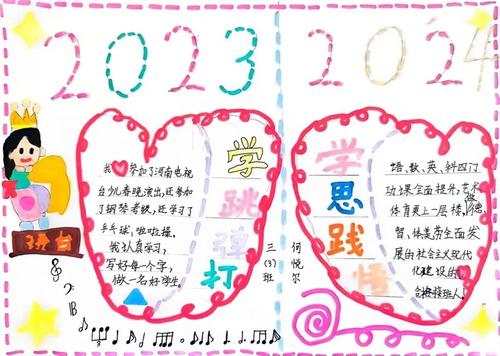 2023
2024
我参加了河南电视
台少儿春晚演出,还参加
了钢琴考级,还学习了
乒乓球,啦啦操。
我认真学习,
写好每一个字,
做一名好学生。
学
跳
弹
打
三(3)班
何悦尔
学
思
践
悟
语、数、英、科四门
功课全面提升,艺术
体育更上一层楼,做德、
智、体美劳全面发
展的社会主义现代
化建设的
合格接班人!